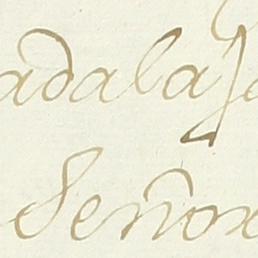 adalaja
Señor